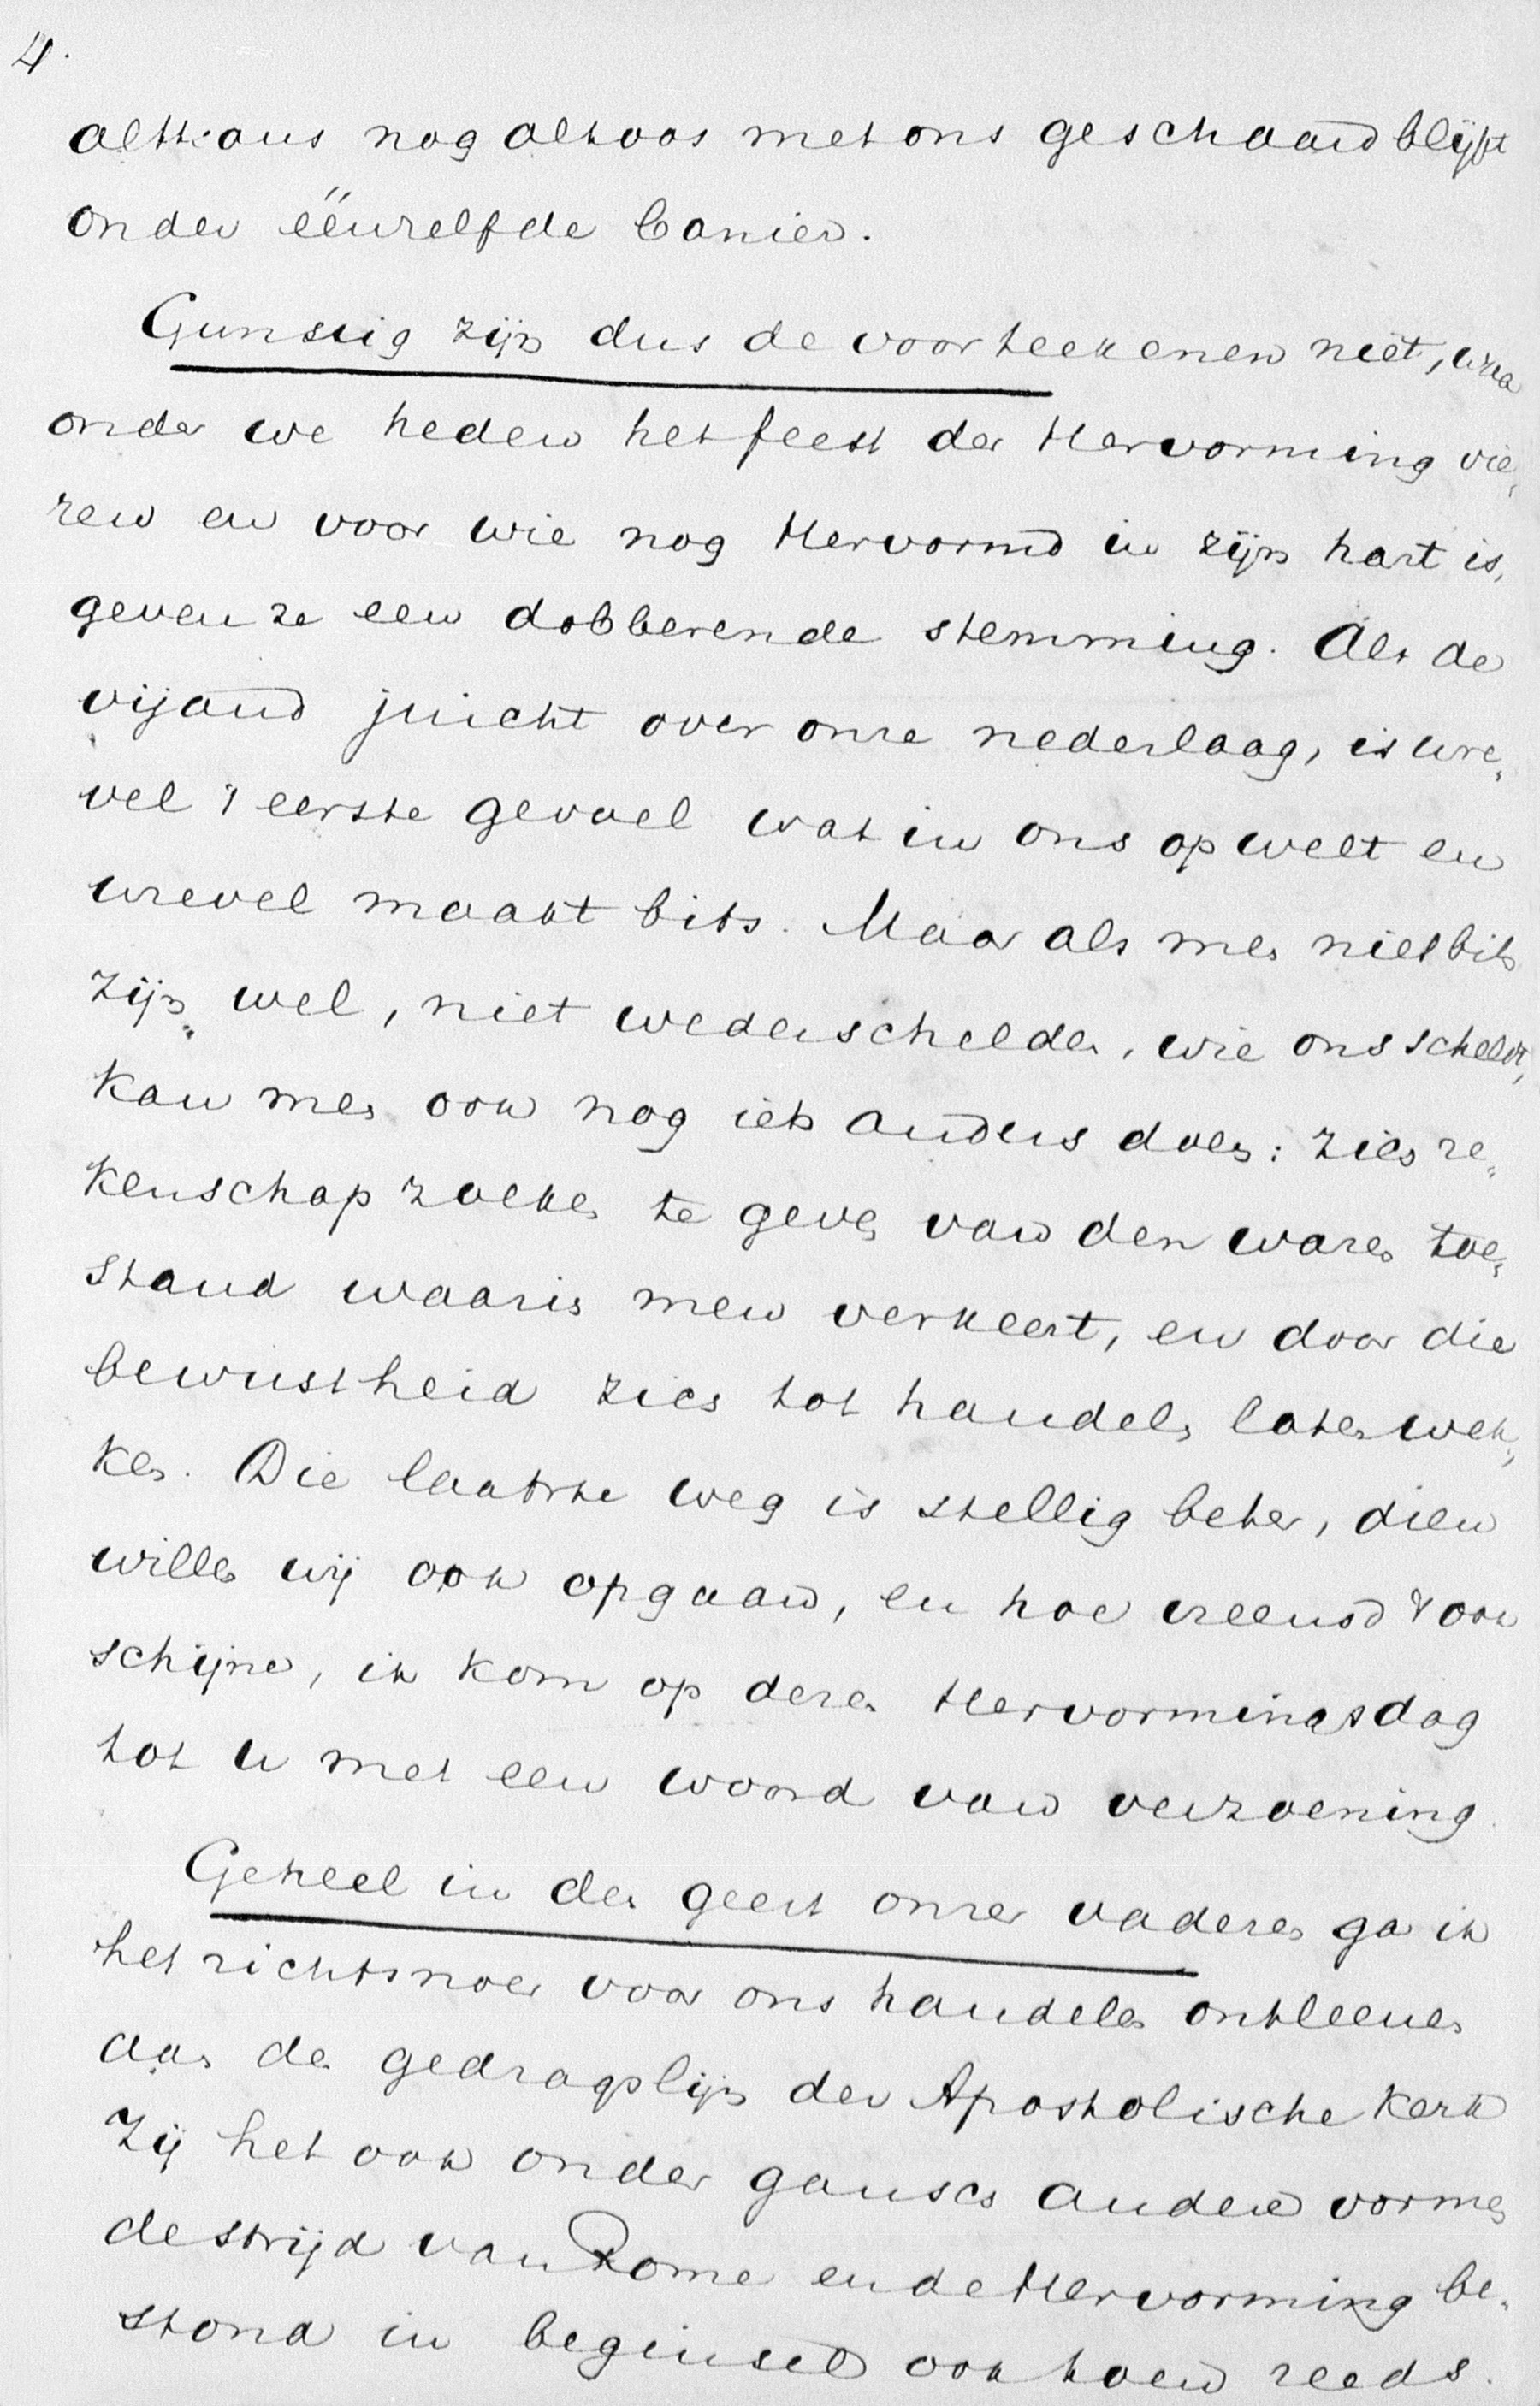 4.
althans nog altoos met ons geschaard blijft
onder éénzelfde banier.
Gunstig zijn dus de voorteekenen niet, waar
onder we heden het feest der Hervorming vie„
ren en voor wie nog Hervormd in zijn hart is,
geven ze een dobberende stemming. Als de
vijand juicht over onze nederlaag, is wre„
vel 't eerste gevoel wat in ons opwelt en
wrevel maakt bits. Maar als men niet bits
zijn wel, niet wederschelden, wie ons scheldt,
kan men ook nog iets anders doen: zich re„
kenschap zoeken te geven van den waren toe„
stand waarin men verkeert, en door die
bewustheid zich tot handelen laten wek„
ken. Die laatste weg is stellig beter, dien
willen wij ook opgaan, en hoe vreemd 't ook
schijne, ik kom op dezen Hervormingsdag
tot u met een woord van verzoening.
Geheel in den geest onzer vaderen ga ik
het richtsnoer voor ons handelen ontleenen
aan de gedragslijn der Apostolische kerk
Zij het ook onder gansch andere vormen
de strijd van Rome en de Hervorming be„
stond in beginsel ook toen reeds.